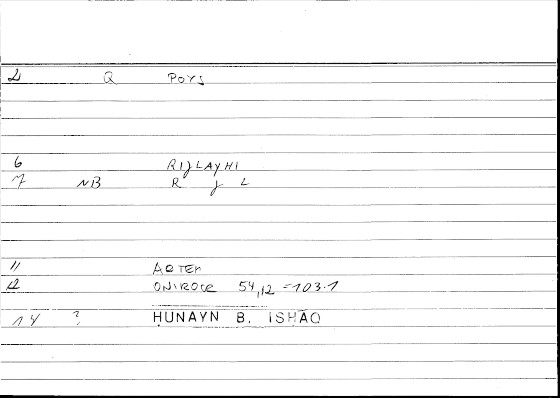 2 Q POYS
6 RIJLAYHI
7 NB R J L
11 ARTEM
12 ONIROCR 54,12 = 103.1
14 ? ḤUNAYN B. ISḤĀQ